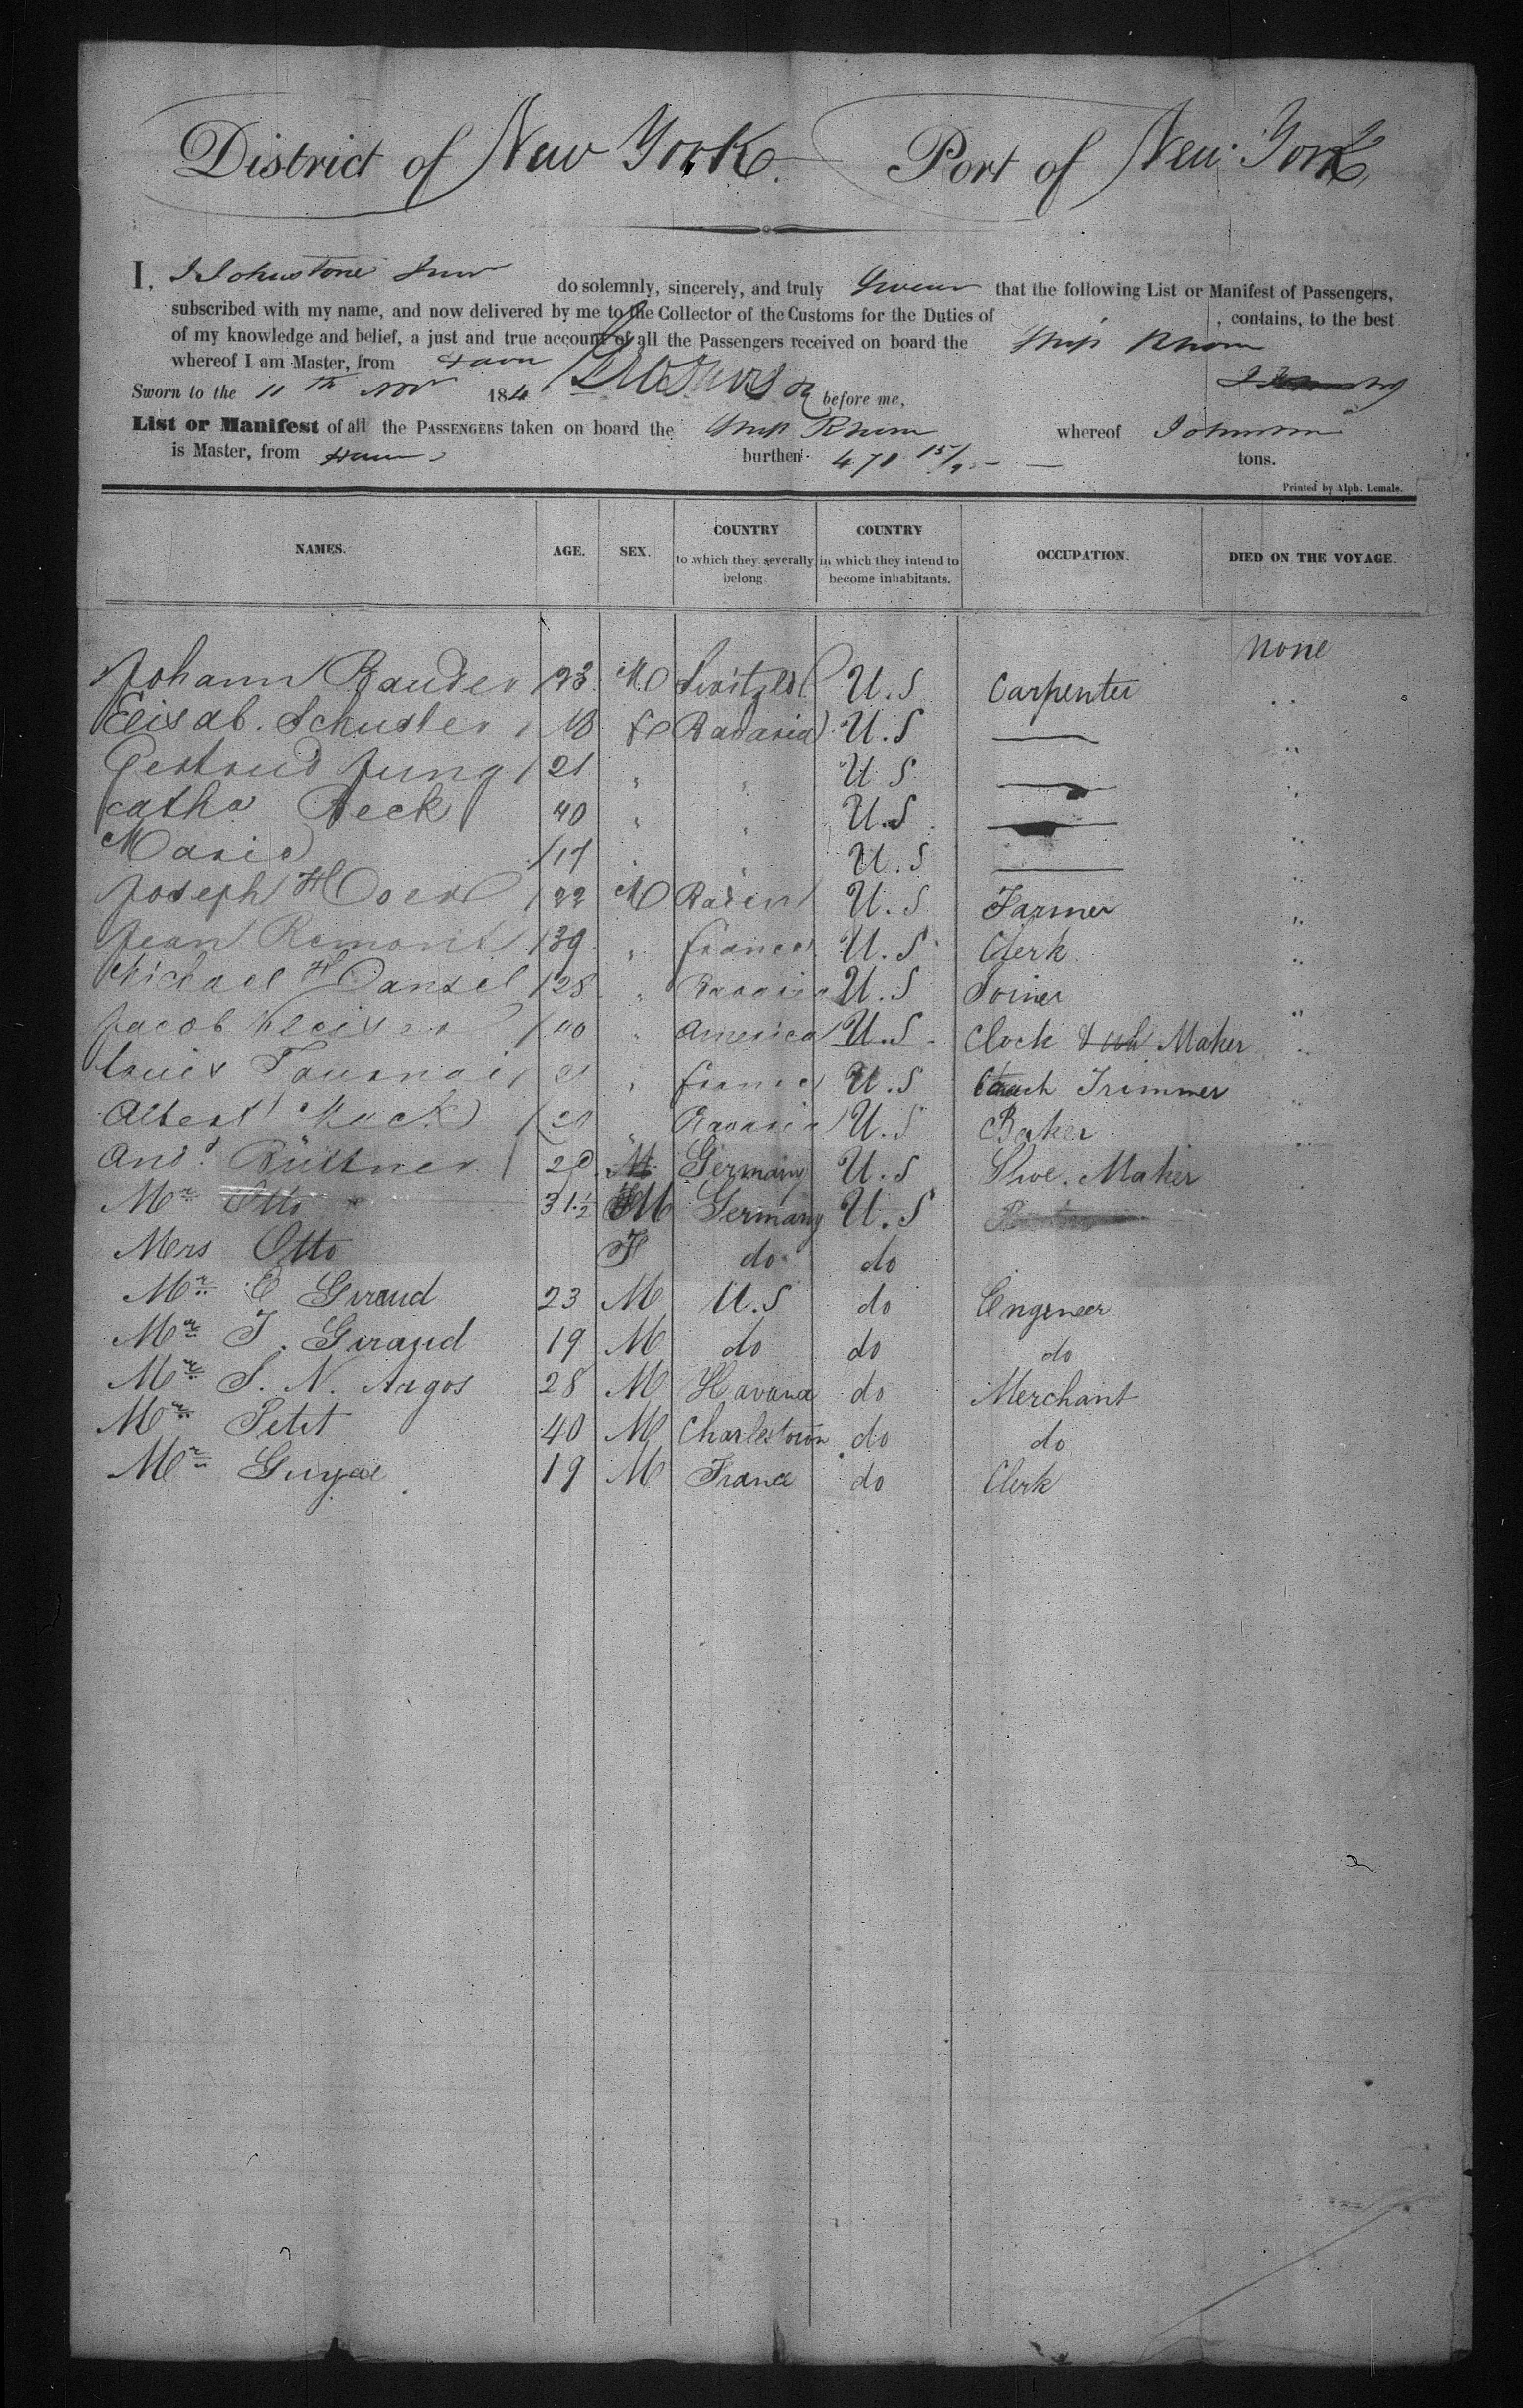 District of New York. Port of New York
I, J Johnstone do solemnly, sincerely, and truly Swear that the following List or Manifest of Passengers,
subscribed with my name, and now delivered by me to the Collector of the Customs for the Duties of , contains, to the best
of my knowledge and belief, a just and true account of all the Passengers received on board the Ship
whereof I am Master, from
Sworn to the 11th Nov 184 before me,
List or Manifest of all the PASSENGERS taken on board the Ship whereof
is Master, from burthen 470 tons.
Printed by Alph. Lemale.
NAMES. AGE. SEX. COUNTRY to which they severally belong COUNTRY in which they intend to become inhabitants. OCCUPATION. DIED ON THE VOYAGE.
none
Johann Bauder 23 M U.S Carpenter ..
Elisab. Schuster 18 fe Bavaria U.S — ..
Gertrud Jung 21 " " U S — ..
Catha Beck 40 " " U.S — ..
Maria 17 " " U.S — ..
Joseph 22 M Baden U.S Farmer "
Jean Remont 39 " france U.S Clerk ..
Michael Hansel 28 " Bavaria U.S Joiner "
Jacob 40 " America U.S Clock & Maker ..
Louis " france U.S Coach Trimmer ..
Albert Mack 20 " Bavaria U.S Baker ..
And. Büttner 20 M. Germany U.S Shoe. Maker
Mr Otto 31 1/2 M Germany U.S
Mers Otto F do do
Mr E Giraud 23 M U.S do Engineer
Mr J. Giraud 19 M do do do
Mr S. N. Argos 28 M Havana do Merchant
Mr Petit 40 M Charlestown do do
Mr 19 M France do Clerk